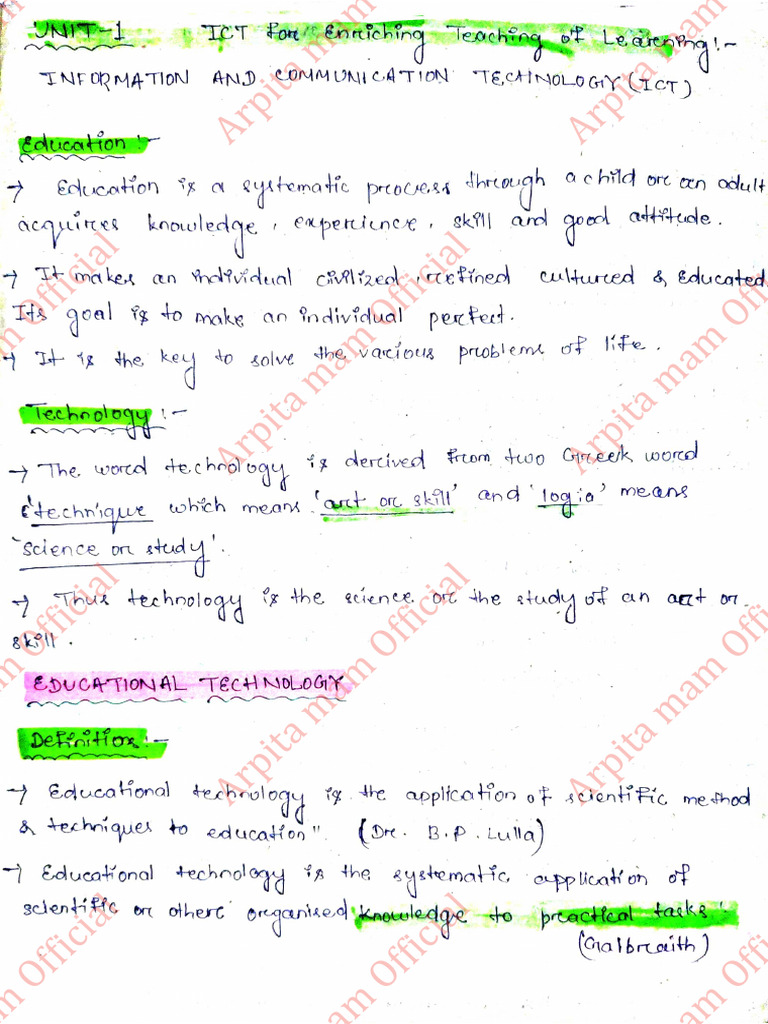 UNIT-1 ICT for Enriching Teaching of Learning:-
INFORMATION AND COMMUNICATION TECHNOLOGY (ICT)
Education :-
→ Education is a systematic process through a child or an adult
acquires knowledge, experience, skill and good attitude.
→ It makes an individual civilized, refined cultured & Educated
Its goal is to make an individual perfect.
→ It is the key to solve the various problems of life.
Technology :-
→ The word technology is derived from two Greek word
'technique which means 'art or skill' and 'logia' means
'science or study'.
→ Thus technology is the science or the study of an art or
skill.
EDUCATIONAL TECHNOLOGY
Definition :-
→ Educational technology is the application of scientific method
& techniques to education" (Dr. B.P. Lulla)
→ Educational technology is the systematic application of
scientific or other organised knowledge to practical tasks:
(Galbraith)
Arpita mam Official